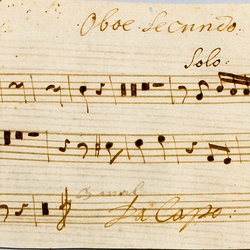 Oboe Secundo.
Solo:
Da Capo: